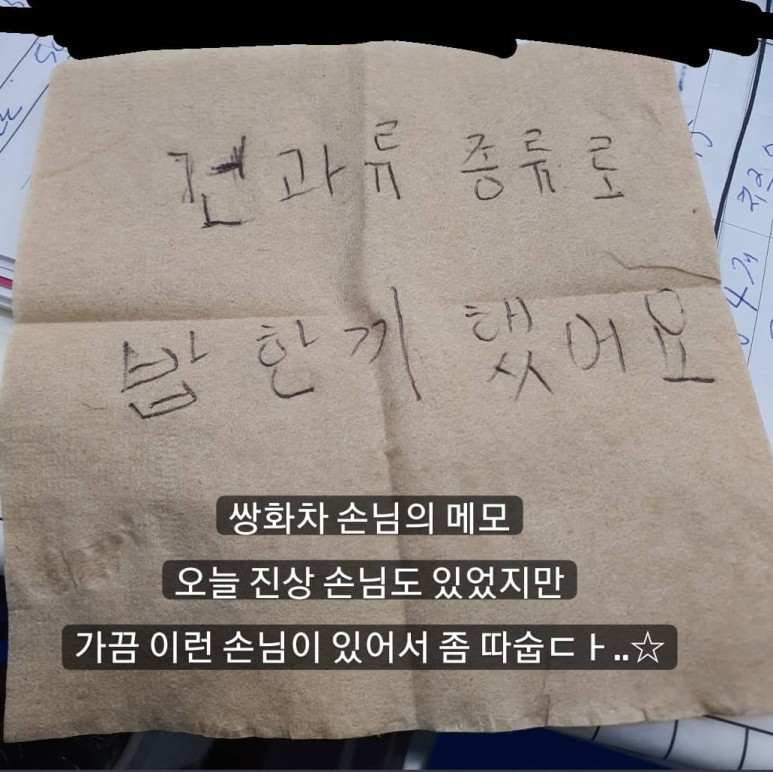 견과류 종류로
밥 한끼 했어요
쌍화차 손님의 메모
오늘 진상 손님도 있었지만
가끔 이런 손님이 있어서 좀 따숩ㄷㅏ..☆
4개